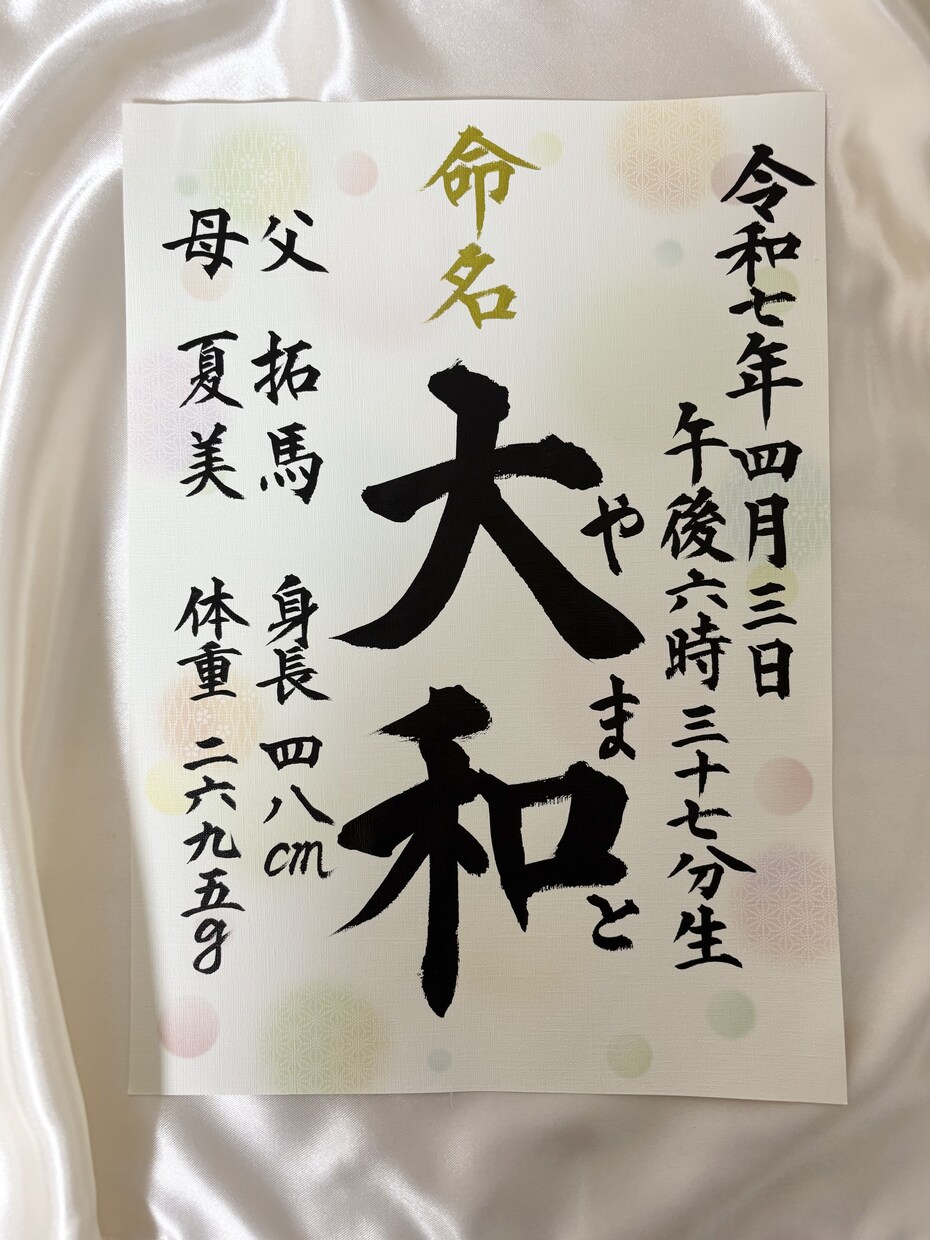 令和七年 四月三日
午後六時三十七分生
命名
大和
やまと
父 拓馬 身長 四八cm
母 夏美 体重 二六九五g